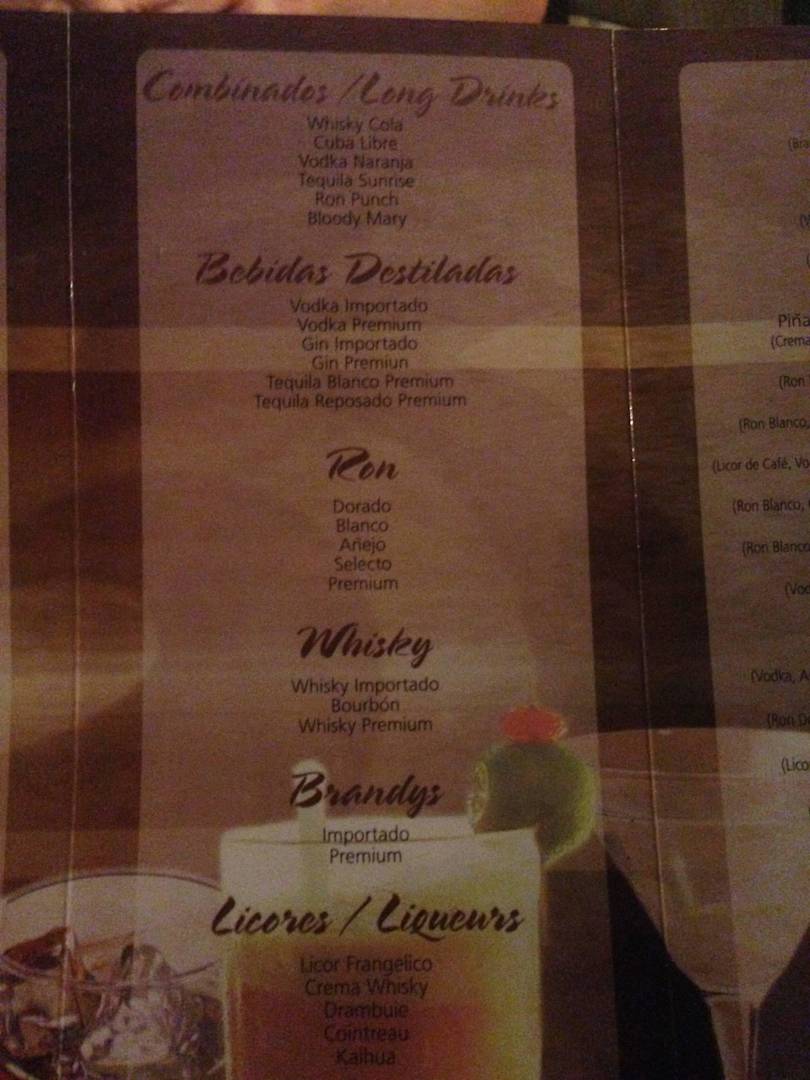 Combinados / Long Drinks
Whisky Cola
Cuba Libre
Vodka Naranja
Tequila Sunrise
Ron Punch
Bloody Mary
Bebidas Destiladas
Vodka Importado
Vodka Premium
Gin Importado
Gin Premiun
Tequila Blanco Premium
Tequila Reposado Premium
Ron
Dorado
Blanco
Añejo
Selecto
Premium
Whisky
Whisky Importado
Bourbón
Whisky Premium
Brandys
Importado
Premium
Licores / Liqueurs
Licor Frangelico
Crema Whisky
Drambuie
Cointreau
Kalhua
Piña
(Crema
(Ron
(Ron Blanco,
(Licor de Café,
(Ron Blanco,
(Ron Blanco
(Vodka,
(Ron